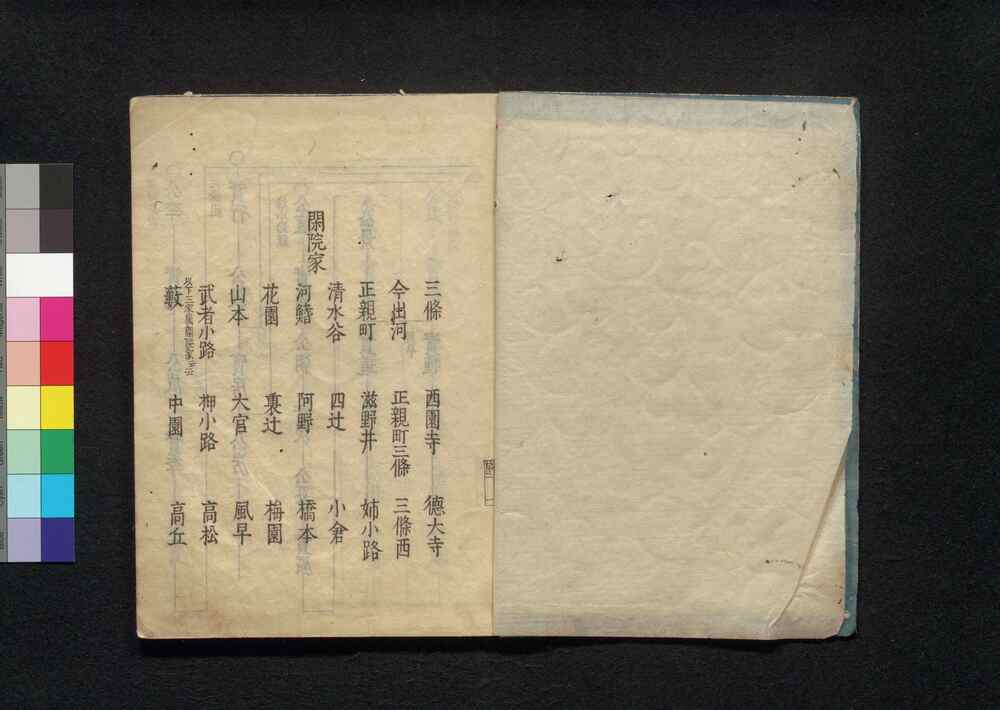 閑院家
三條 西園寺 德大寺
今出河 正親町三條 三條西
正親町 滋野井 姉小路
清水谷 四辻 小倉
河鰭 阿野 橋本
花園 裏辻 梅園
山本 大宮 風早
武者小路 押小路 高松
以下三家號閑院家
藪 中園 高丘